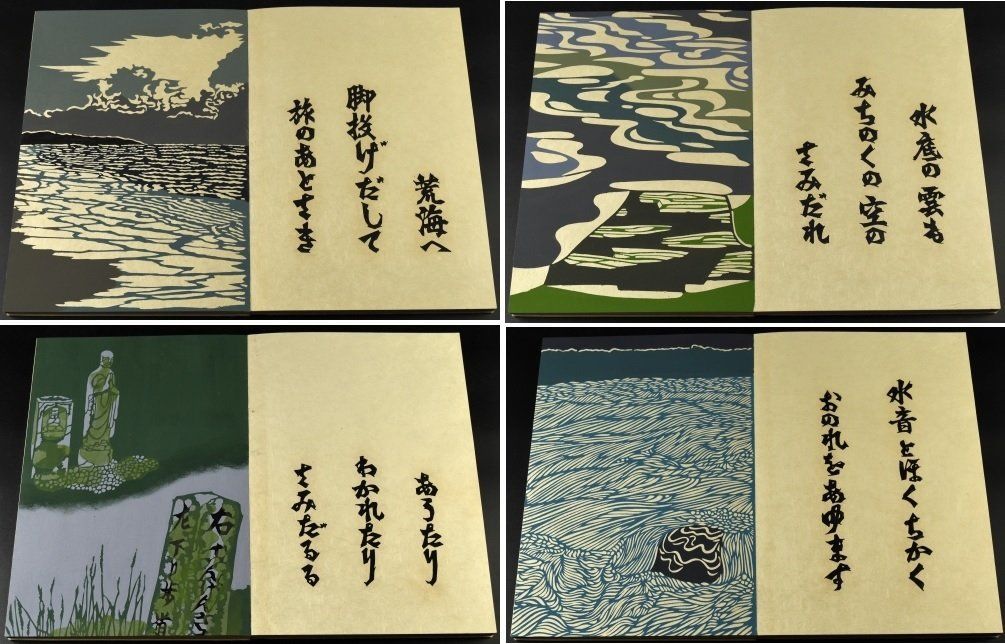 荒海へ
脚投げだして
旅のあとさき
水底の雲も
みちのくの空の
さみだれ
あうたり
わかれたり
さみだるる
水音とほくちかく
おのれをあゆます
右